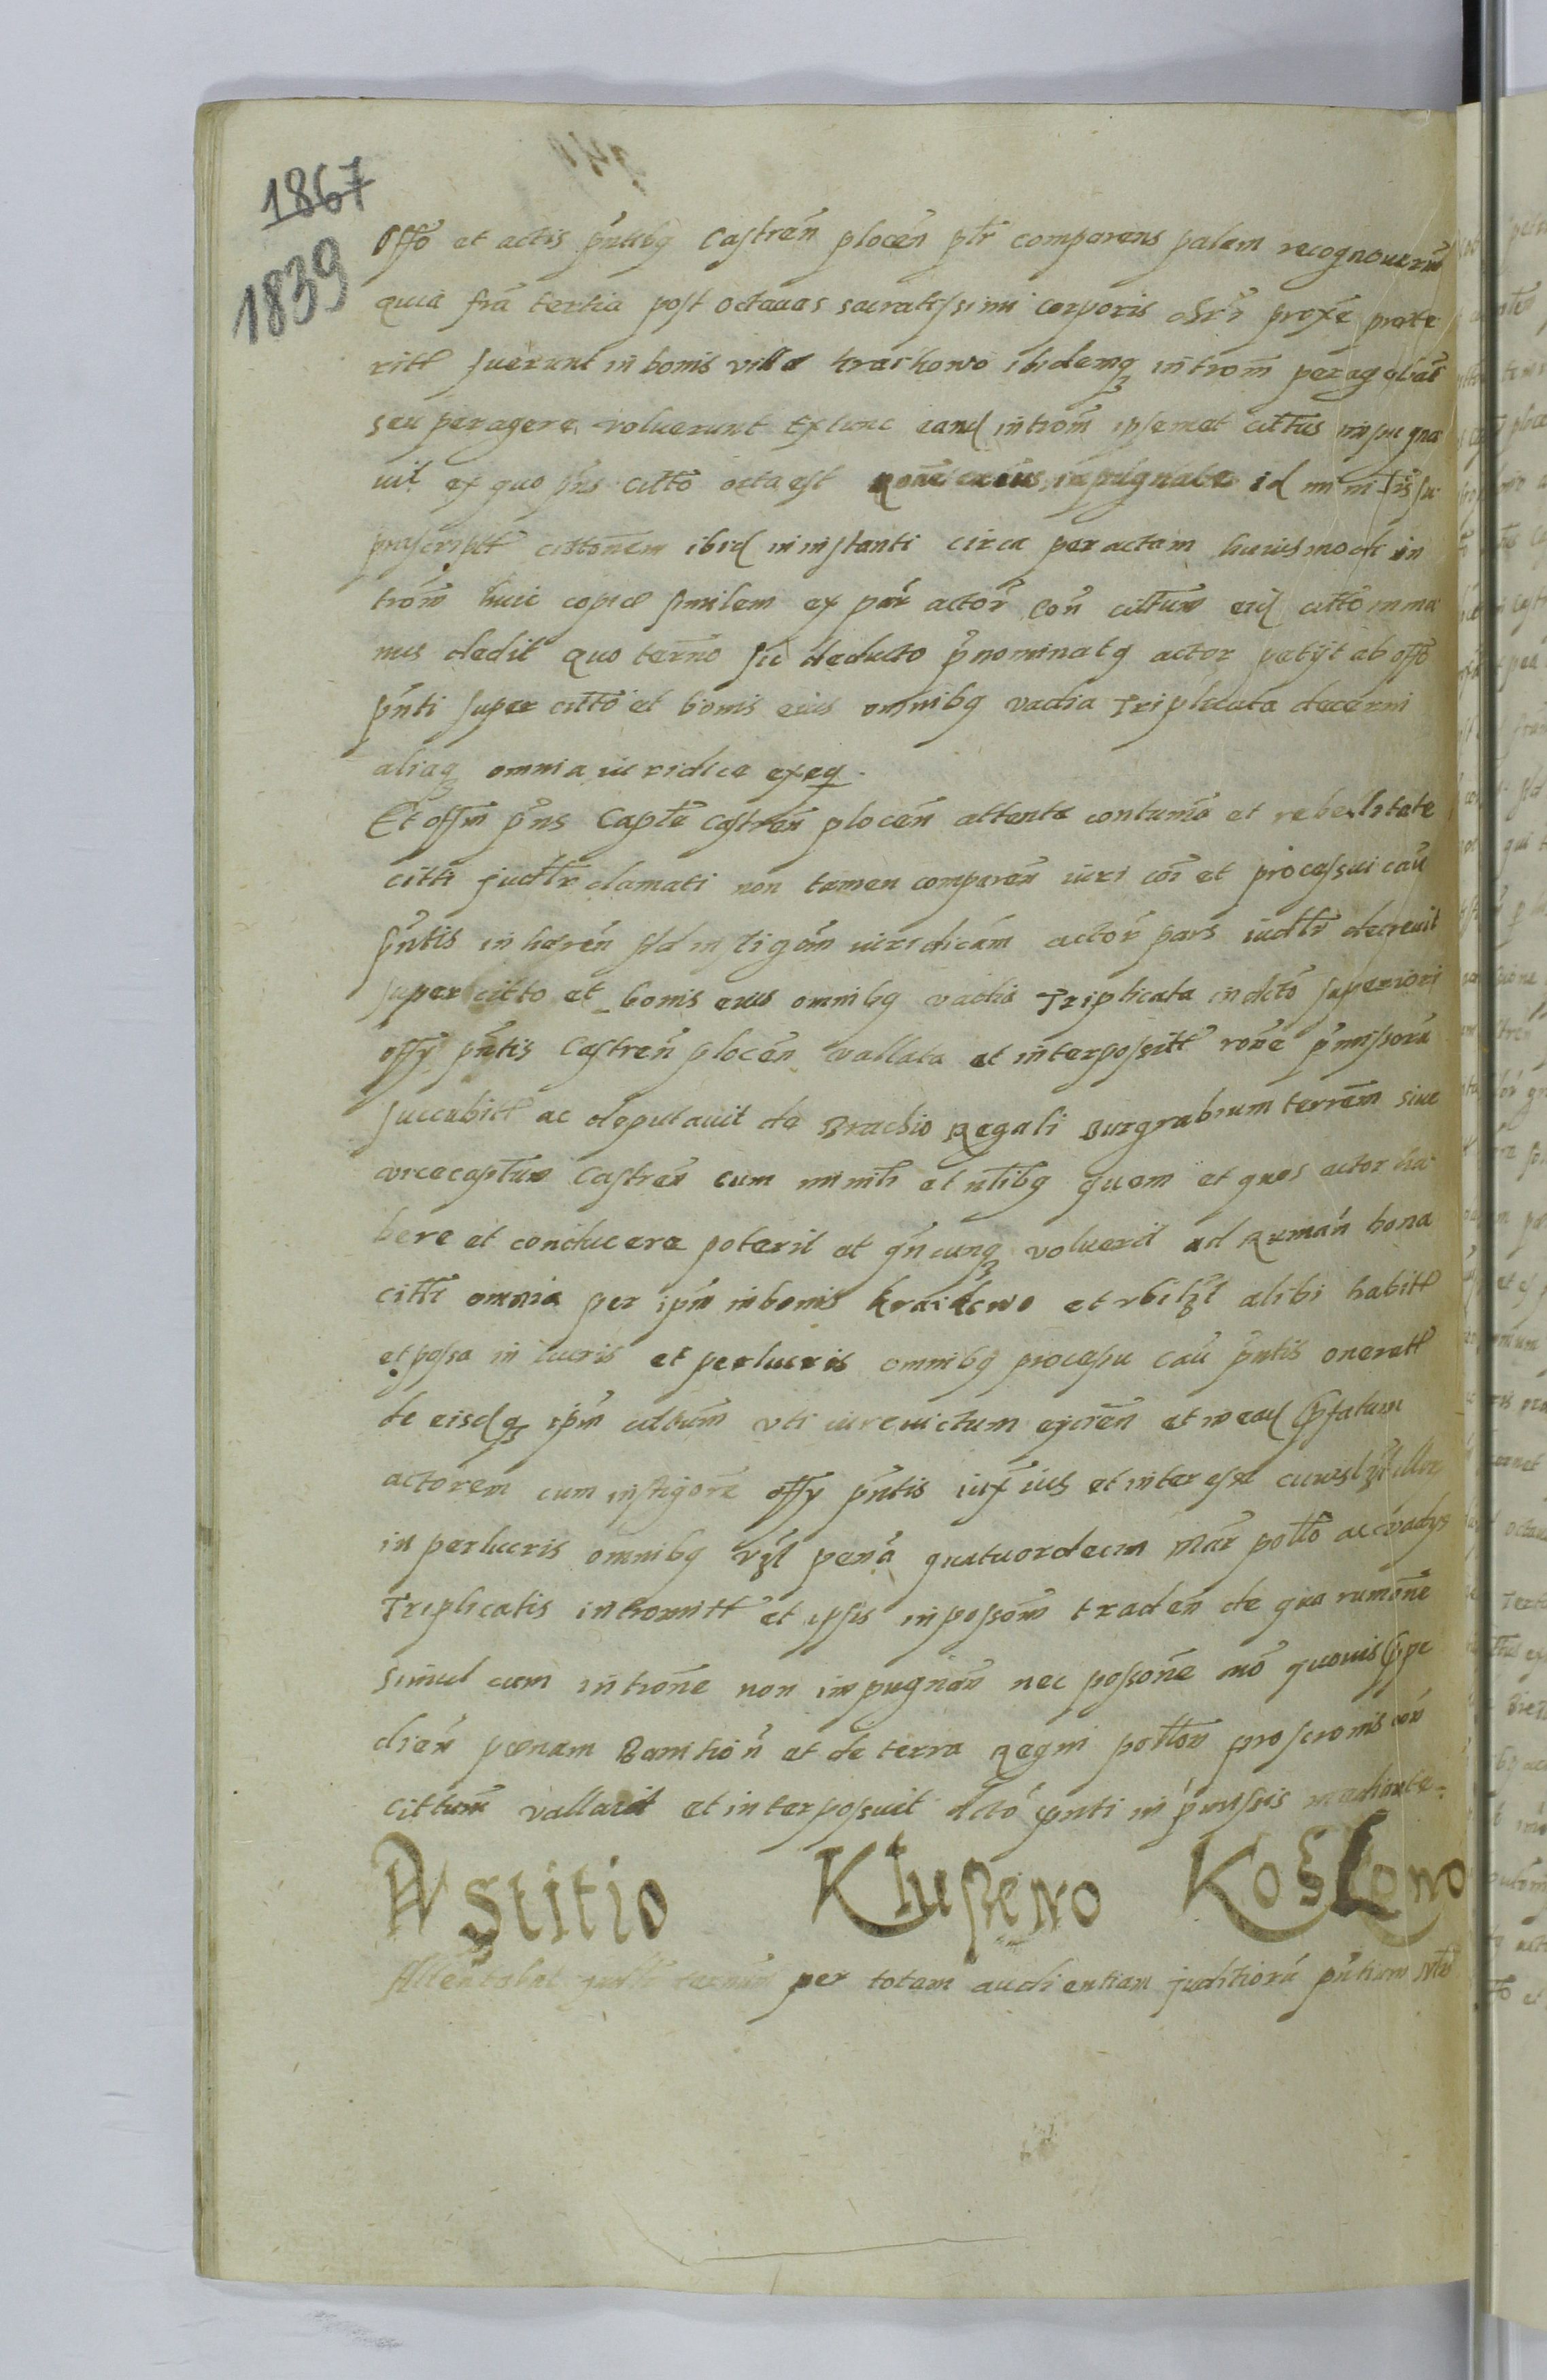 1867
1839
Offo et actis pntibq Castren plocen ptr comparens palam recognouerunt
quia fria tertia post octauas sacratissimi corporis chri proxe prete
ritt fuerunt in bonis villa kraikowo ibidemq introm peragebat
seu peragere voluerunt Extunc eand introm ipsemet cittus impugna
uit ex quo pns citto orta est Rone cuius impugnate id ministis su
prascriptt cittonem ibid in instanti circa peractam huiusmodi in
trom huic copiæ similem ex par actor Con cittum eid citto in ma
nus dedit Quo termo sic deducto pnominatq actor petijt ab offo
pnti super citto et bonis eius omnibq vadia Triplicata decerni
aliaq omnia iuridice exeq.
Et offm pns Captle Castren plocen attenta contuma et rebellitate
citti judtr clamati non tamen comparen iuri coi et processui cau
pntis in hæren ad instigam iuridicam actor pars iudtr decreuit
super citto et bonis eius omnibq vadia Triplicata in dcto superiori
offy pntis Castren plocen vallata et interpositt rone pmissoru
succubitt ac deputauit de Brachio Regali Burgrabium terrem siue
vicecaptum Castren cum minitr et ntibq quem et quos actor ha
bere et conducere poterit et qncunq voluerit ad Ruman bona
citti omnia per ipm in bonis kraikowo et vbilzt alibi habitt
et possa in lucris et perlucris omnibq processu cau pntis oneratt
de eisdq ipm cittum vti iure uictum eijcien et in ead pfatum
actorem cum instigore offy pntis iux ius et interesse cuiuslzt illor
in perlucris omnibq vzl pena quatuordecim Mar pollo ac vadys
Triplicatis intromitt et ipsis in possom traden de qua rumone
simul cum introne non impugnan nec possone mo quouis impe
dien pœnam Banition et de terra Regni pollon proscronis con
cittum vallauit et interposuit dcto pnti in pmissis mediante.
Astitio Klusieno Koslowo
Attentabat judtr termum per totam audientiam juditioru pntium